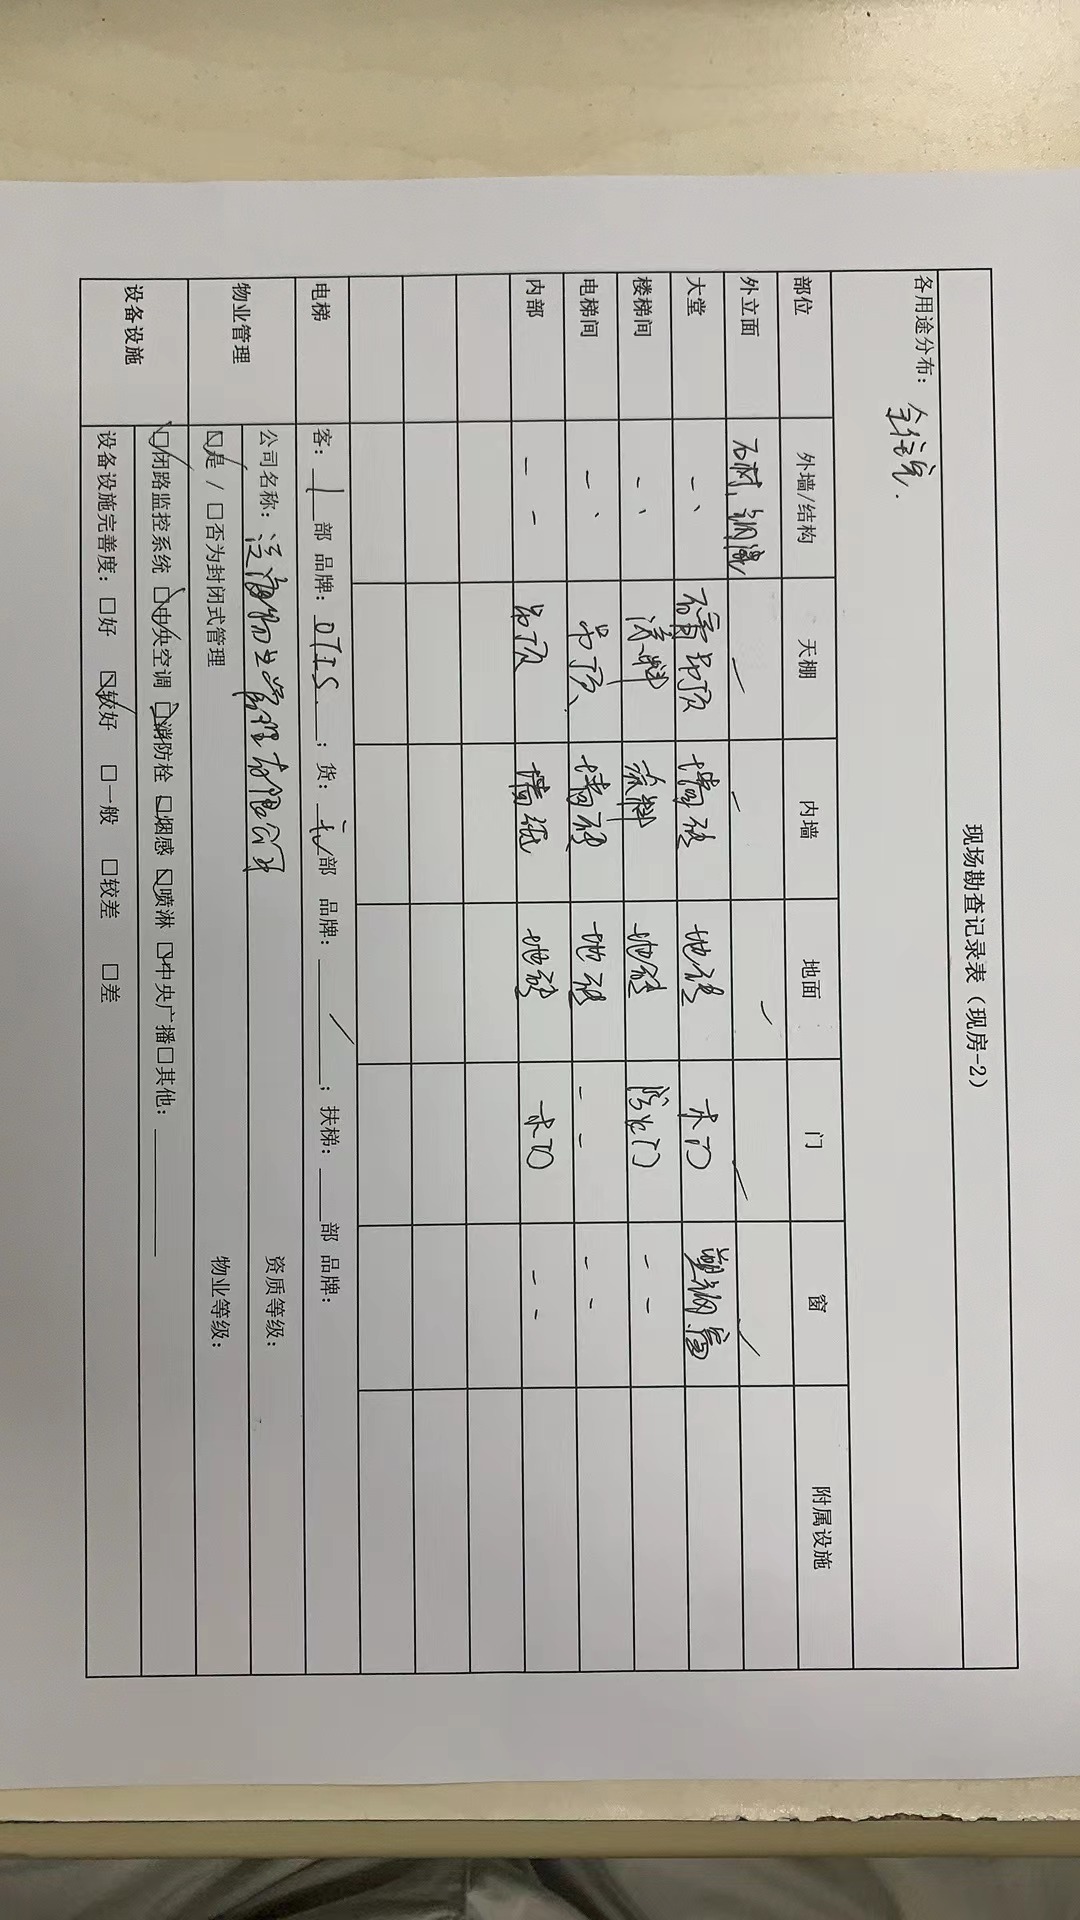 现场勘查记录表（现房-2）
各用途分布： 全住宅.
部位 外墙/结构 天棚 内墙 地面 门 窗 附属设施
外立面 石材、
大堂 吊顶 墙砖 地砖 木门 塑钢窗
楼梯间 涂料 涂料 地砖 防火门 - -
电梯间 吊顶 墙砖 地砖 - - - -
内部 - - 吊顶 墙砖 地砖 木门 - -
电梯 客： 1 部 品牌： OTIS. ；货： 部 品牌： / ；扶梯： 部 品牌：
物业管理 公司名称： 泛海物业管理有限公司 资质等级：
☑是 / □否为封闭式管理 物业等级：
设备设施 ☑闭路监控系统 ☑中央空调 ☑消防栓 ☑烟感 ☑喷淋 ☑中央广播□其他：
设备设施完善度：□好 ☑较好 □一般 □较差 □差